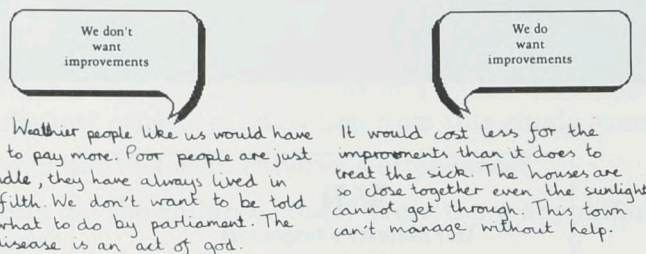 We don't
want
improvements
Weathier people like us would have
to pay more. Poor people are just
idle, they have always lived in
filth. We don't want to be told
what to do by parliament. The
disease is an act of god.
We do
want
improvements
It would cost less for the
improvments than it does to
treat the sick. The houses are
so close together even the sunlight
cannot get through. This town
can't manage without help.